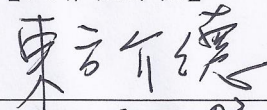 東方介德